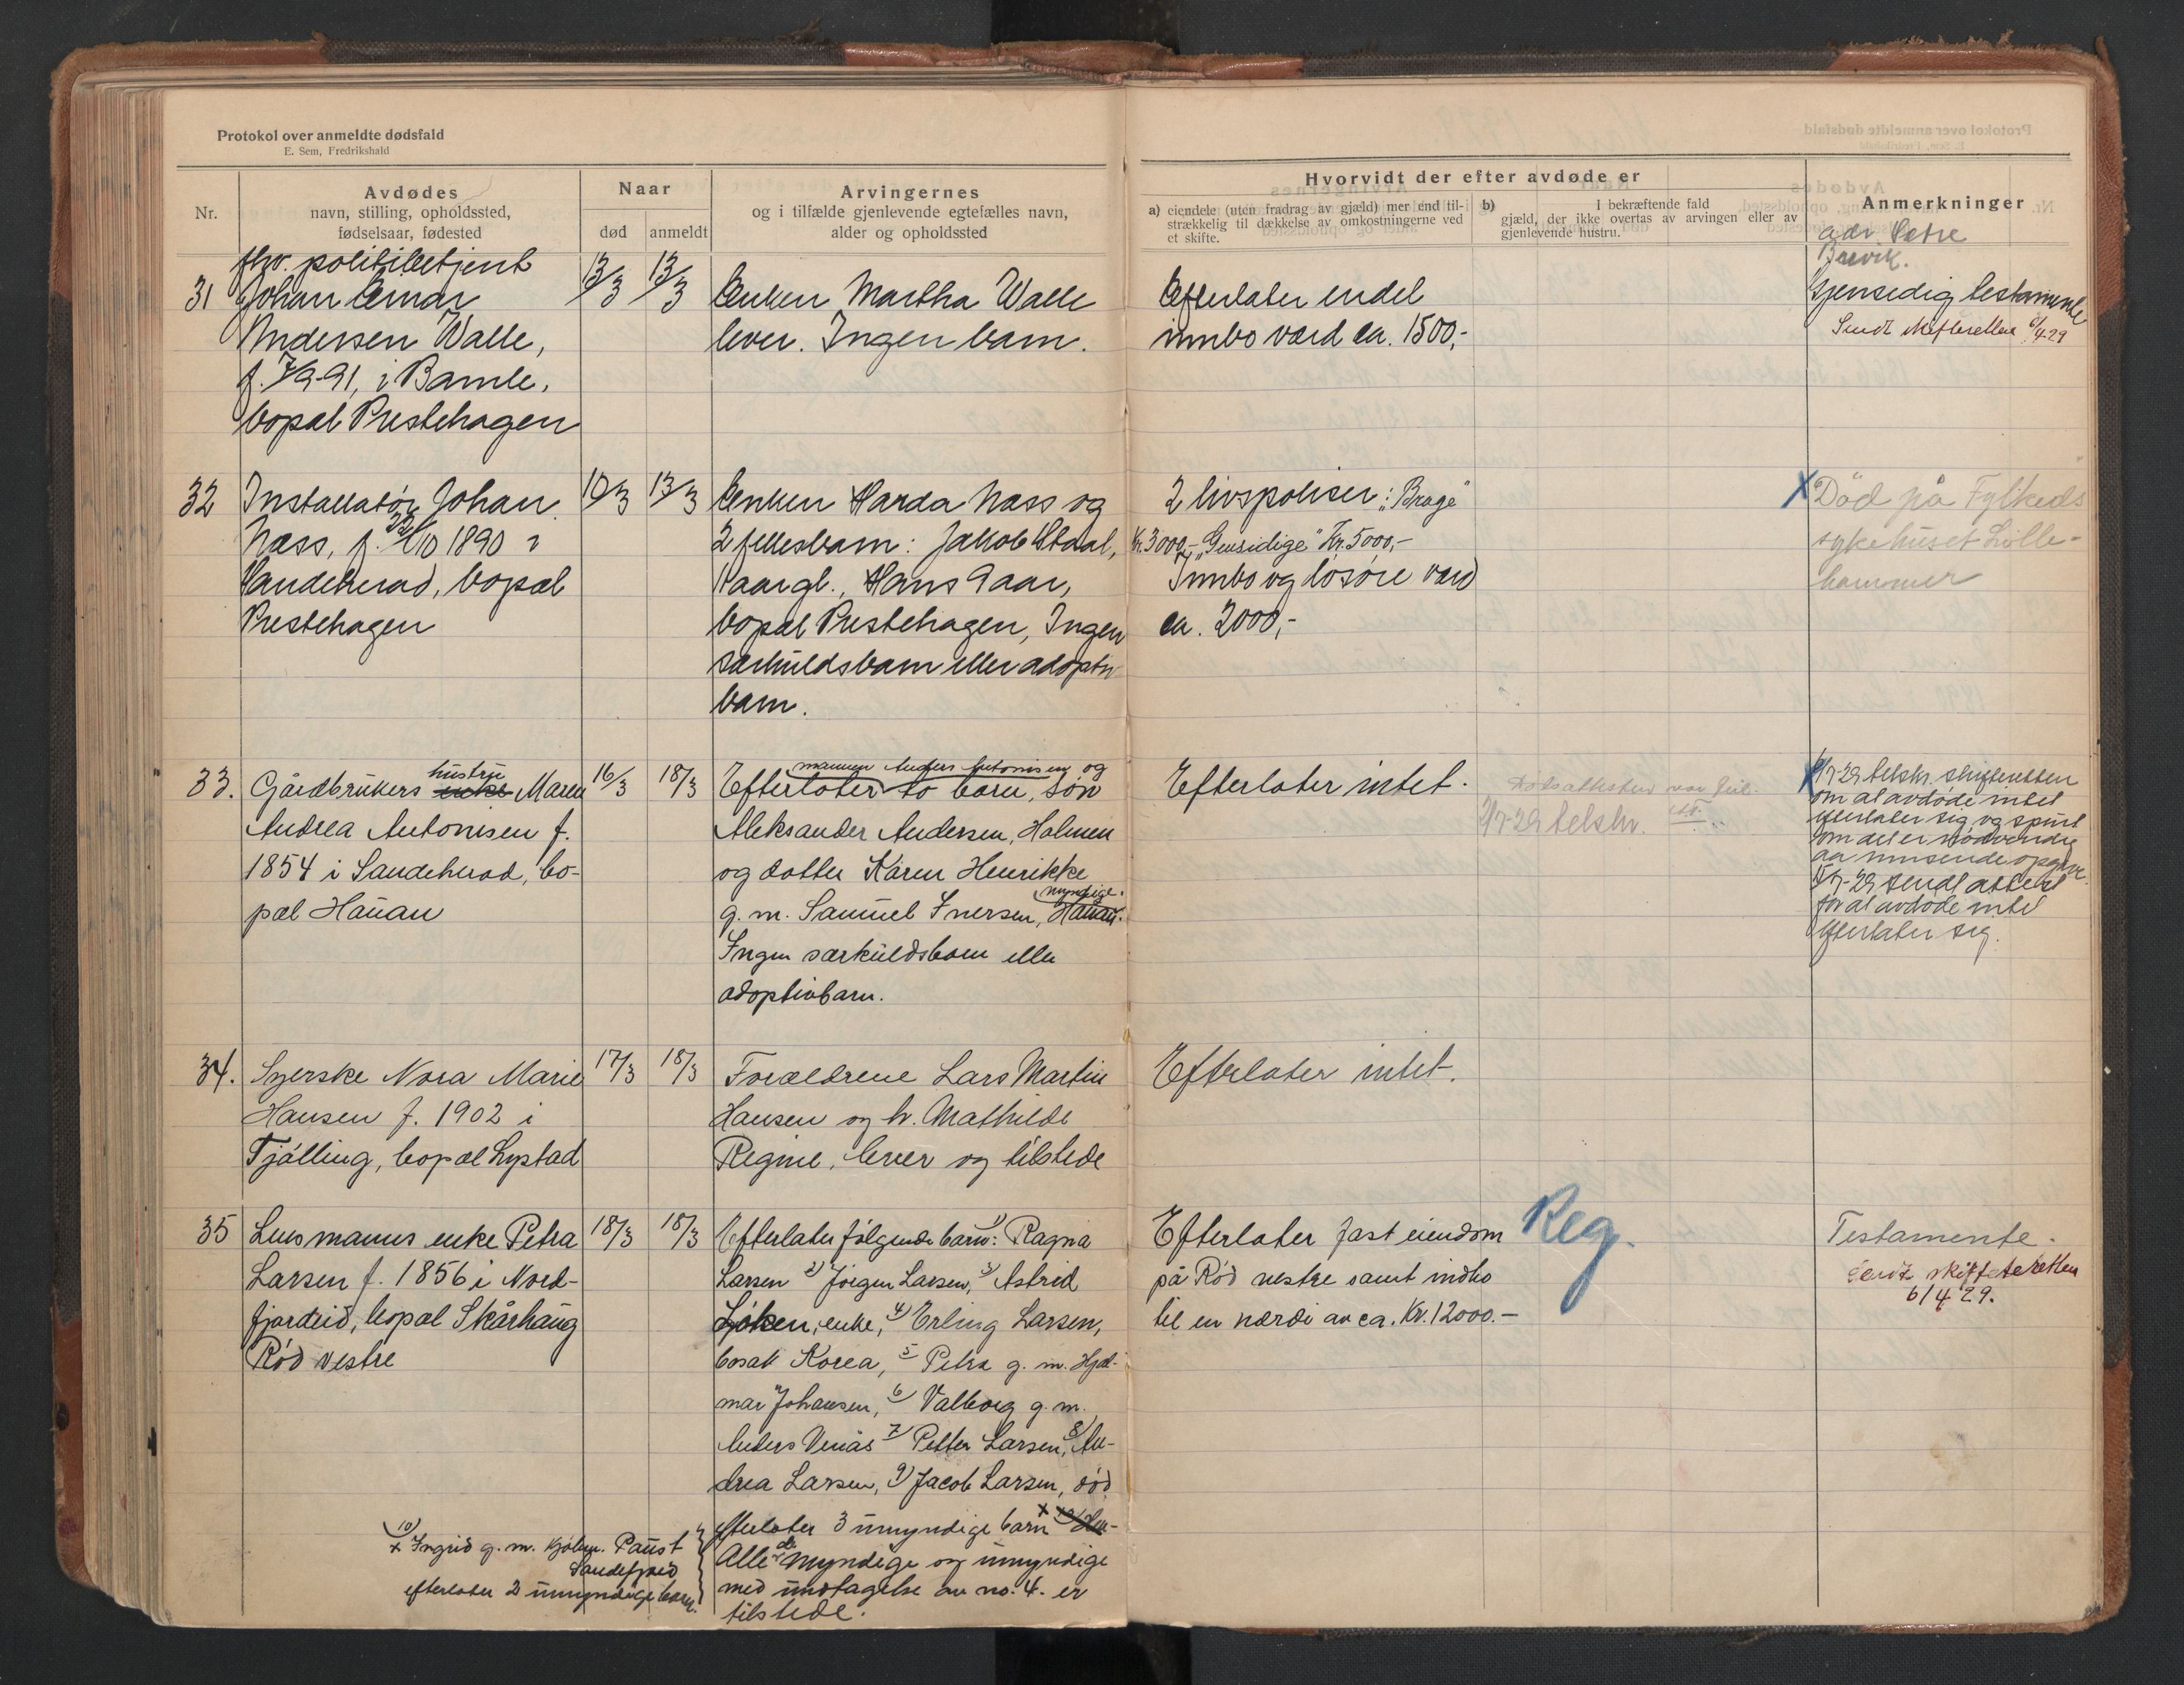 Protokol over anmeldte dødsfald
E. Sem, Fredrikshald
Nr.
Avdødes
navn, stilling, opholdssted,
fødselsaar, fødested
Naar
død
anmeldt
Arvingernes
og i tilfælde gjenlevende egtefælles navn,
alder og opholdssted
Hvorvidt der efter avdøde er
a) eiendele (uten fradrag av gjæld) mer end til-
strækkelig til dækkelse av omkostningerne ved
et skifte.
b) I bekræftende fald
gjæld, der ikke overtas av arvingen eller av
gjenlevende hustru.
Anmerkninger
31
fhv. politibetjent
Johan Einar
Andersen Walle,
f. 7/9-91, i Bamle,
bopæl Prestehagen
13/3
13/3
Enken Martha Walle
lever. Ingen barn.
Efterlater endel
innbo værd ca. 1500,-
adv.
Brevik.
Gjensidig testamente
Sendt skifteretten 6/4 29
32
Installatør Johan
Næss, f. 22/10 1890 i
Sandeherad, bopæl
Prestehagen
10/3
13/3
Enken Harda Næss og
2 fellesbarn: Jakob Staal,
aar gl., Hans 9 aar,
bopæl Prestehagen, Ingen
særkuldsbarn eller adoptiv
barn.
2 livspoliser: "Brage"
Kr. 3000,- "Gensidige" Kr. 5000,-
Innbo og løsøre værd
ca. 2000,-
X Död på Fylkeds
sykehuset Lille-
hammer
33.
Gårdbrukers enke hustru Maren
Andrea Antonisen f.
1854 i Sandeherad, bo-
pæl Hauan
16/3
18/3
mannen Anders Antonisen og
Efterlater to barn, søn
Aleksander Andersen, Holmen
og datter Karen Henrikke
g. m. Samuel Iversen, Hauan. myndige.
Ingen særkuldsbarn eller
adoptivbarn.
Efterlater intet.
Dödsattesten var
telskr.
telskr. skifteretten
om at avdøde intet
efterlater sig og spurt
om det er nødvendig
aa innsende opgave
sendt attest
for at avdøde intet
efterlater sig.
34.
Syerske Nora Marie
Hansen f. 1902 i
Tjølling, bopæl Lystad
17/3
18/3
Forældrene Lars Martin
Hansen og h. Mathilde
Regine, lever og tilstede
Efterlater intet.
35
Lensmanns enke Petra
Larsen f. 1856 i Nord-
fjordeid, bopæl Skårhaug
Rød vestre
18/3
18/3
Efterlater følgende barn: 1) Ragna
Larsen 2) Jörgen Larsen, 3) Astrid
Løken, enke, 4) Erling Larsen,
bosatt Korea, 5 Petra g. m. Hjal-
mar Johansen, 6) Valborg g. m.
Anders Venås 7) Petter Larsen, 8) An-
drea Larsen, 9) Jacob Larsen, død
efterlater 3 umyndige barn x
Alle de myndige og umyndige
med undtagelse av no. 4. er
tilstede.
10)
x Ingrid g. m. kjøbm. Paust
Sandefjord
efterlater 2 umyndige barn.
Efterlater fast eiendom
på Rød vestre samt indbo
til en værdi av ca. Kr. 12000.-
Reg.
Testamente.
Sendt skifteretten
6/4 29.